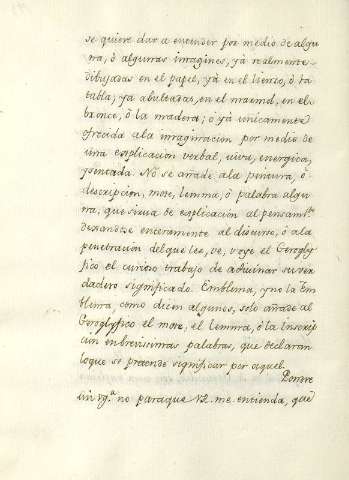 se quiere dar a entender por medio de algu
na, ó algunas imagines, yà realmente
dibujadas en el papel, yà en el lienzo, ó ta
bla; yà abultadas, en el marmol, en el
bronce, ó la madera; o yà unicamente
ofrecida a la imaginacion por medio de
una esplicacion verbal, viva, energica,
y sentada. No se añade a la pintura, ó
descripcion, mote, lemma, ó palabra algu
na, que sirva de esplicacion al pensam.to
dexandose enteramente al discurso, ó a la
penetracion del que lee, ve, y oye el Gerogly
fico el curioso trabajo de adivinar su ver
dadero significado. Emblema, y no la Em
blema como dicen algunos, solo añade al
Geroglyfico el mote, el lemma, ó la Inscrip
cion en brevissimas palabras, que declaran
loque se pretende significar por aquel.
Pondre
un vg.a no paraque me entienda, que